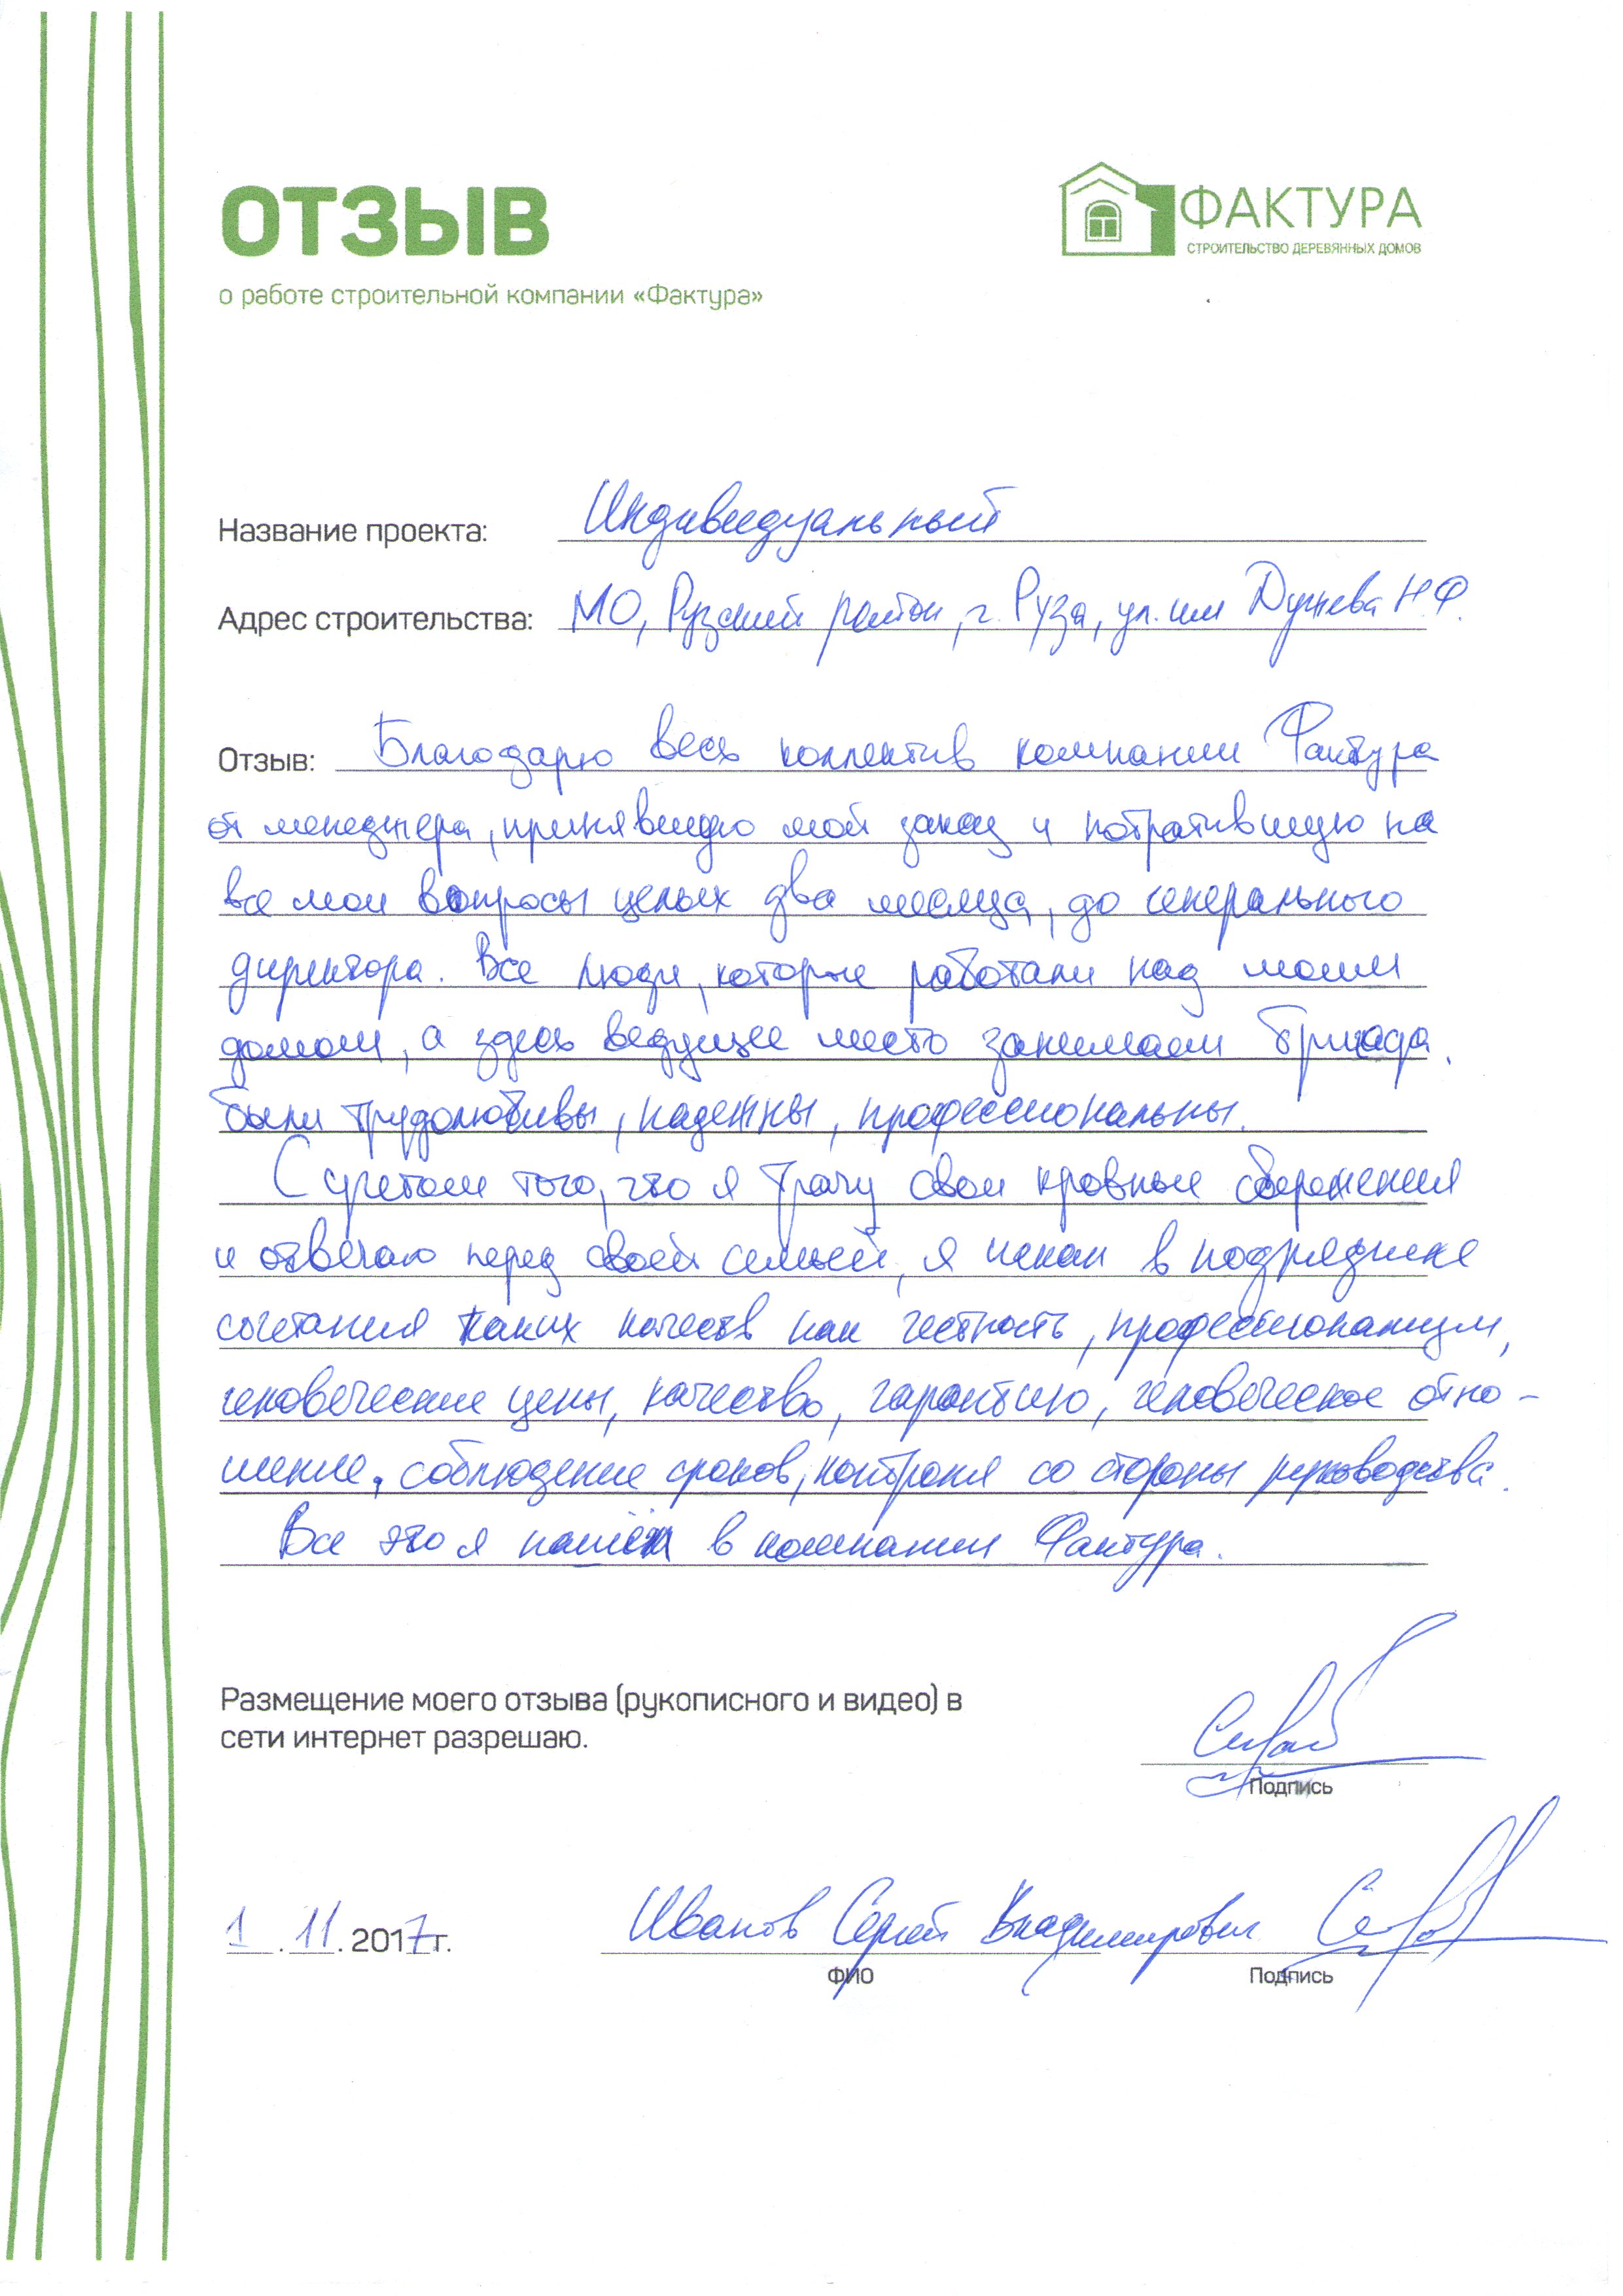 ОТЗЫВ
ФАКТУРА
СТРОИТЕЛЬСТВО ДЕРЕВЯННЫХ ДОМОВ
о работе строительной компании «Фактура»
Название проекта: Индивидуальный
Адрес строительства: МО, Рузский район, г. Руза, ул. им Н.Ф.
Отзыв: Благодарю весь коллектив компании Фактура
от менеджера, принявшую мой заказ и потратившую на
все мои вопросы целых два месяца, до генерального
директора. Все люди, которые работали над моим
домом, а здесь ведущее место занимаем бригада.
были трудолюбивы, надежны, профессиональны.
С учетом того, что я трачу свои кровные сбережения
и отвечаю перед своей семьей, я искал в подрядчике
сочетания таких качеств как честность, профессионализм,
человеческие цены, качество, гарантию, человеческое отно-
шение, соблюдение сроков, контроля со стороны руководства.
Все это я нашёл в компании Фактура.
Размещение моего отзыва (рукописного и видео) в
сети интернет разрешаю.
Подпись
1.11.2017г. Иванов Сергей Владимирович
ФИО Подпись